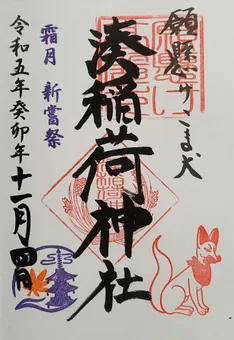 願懸けこま犬
湊稲荷神社
霜月 新嘗祭
令和五年癸卯年十一月四日